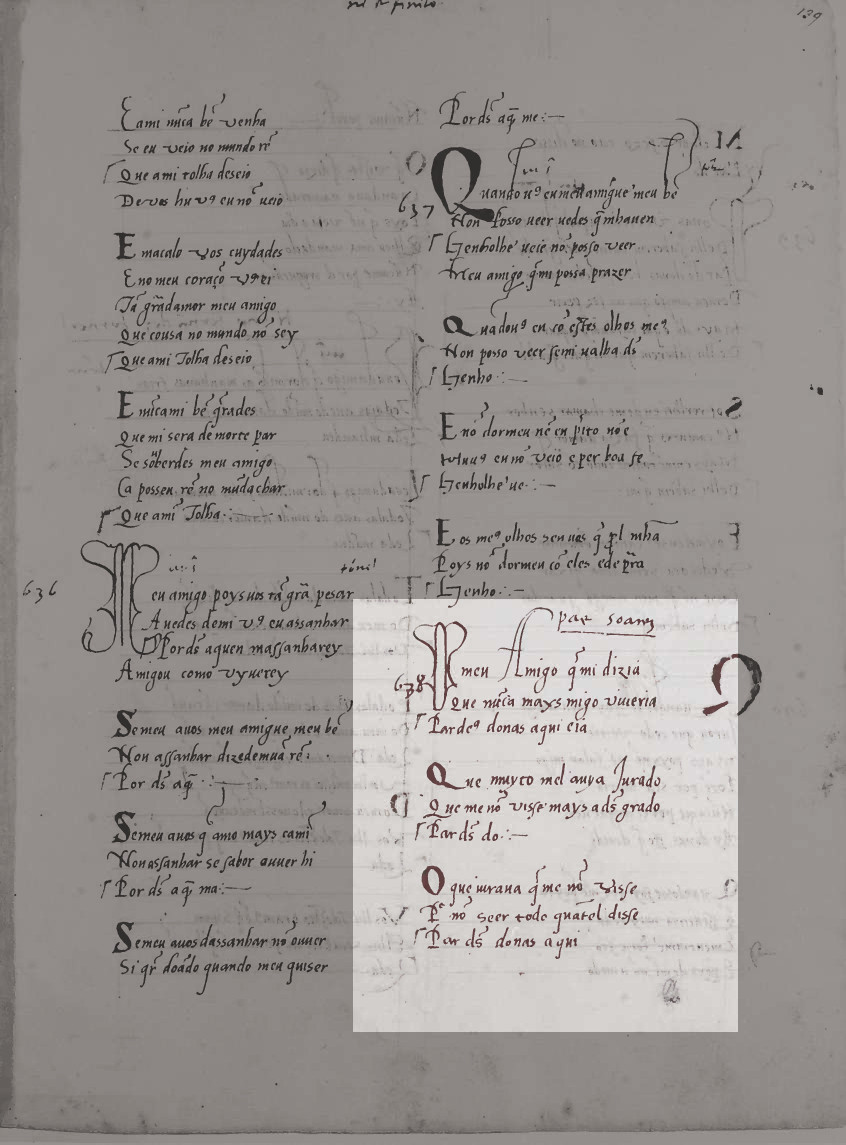 E ami nũca bẽ venha
Se eu veio no mundo rẽ
Que ami tolha deseio
De vos hu vꝯ eu nõ ueio
E macalo vos cuydades
E no meu coraçõ vꝯ ei
Tã grãdamor meu amigo
Que cousa no mundo nõ sey
Que ami Tolha deseio
E nũcami bẽ g̃rades
Que mi sera de morte par
Se soberdes meu amigo
Ca posseu rẽ no mũdachar
Que ami Tolha
636
tónel
Meu amigo poys uos tã grã pesar
Auedes demi vꝯ eu assanhar
Por ds̃ aquen massanharey
Amigou como vyuerey
Semeu auos meu amigue meu bẽ
Non assanhar dizedemuã rẽ
Por ds̃ aq̃
Semeu auos q̃ amo mays cami
Non assanhar se sabor ouuer hi
Por ds̃ a q̃ ma
Semeu auos dassanhar nõ ouuer
Si gr̃ doãdo quando meu quiser
139
Por ds̃ aq̃ me
637
Quando uꝯ eu meu amigue meu bẽ
Non posso ueer uedes q̃ mhauen
Tenholhe ueie nõ posso veer
Meu amigo q̃ mi possa prazer
Quãdouꝯ eu cõ estes olhos meꝯ
Non posso veer semi ualha ds̃
Tenho
E nõ dormeu nẽ en p̃ito nõ e
hu uꝯ eu nõ veio e per boa fe
Tenholhe ue
E os meꝯ olhos sen uos q̃ prol mhã
Poys nõ dormeu cõ eles ede pr̃a
Tenho
pae soarez
638
O meu Amigo q̃ mi dizia
Que nũca mays migo viueria
Par deꝯ donas aqui eia
Que muyto mel auya Jurado
Que me nõ visse mays a ds̃ grado
Par ds̃ do
O que iuraua q̃ me nõ visse
Pᵉ nõ seer tode quãtel disse
Par ds̃ donas aqui